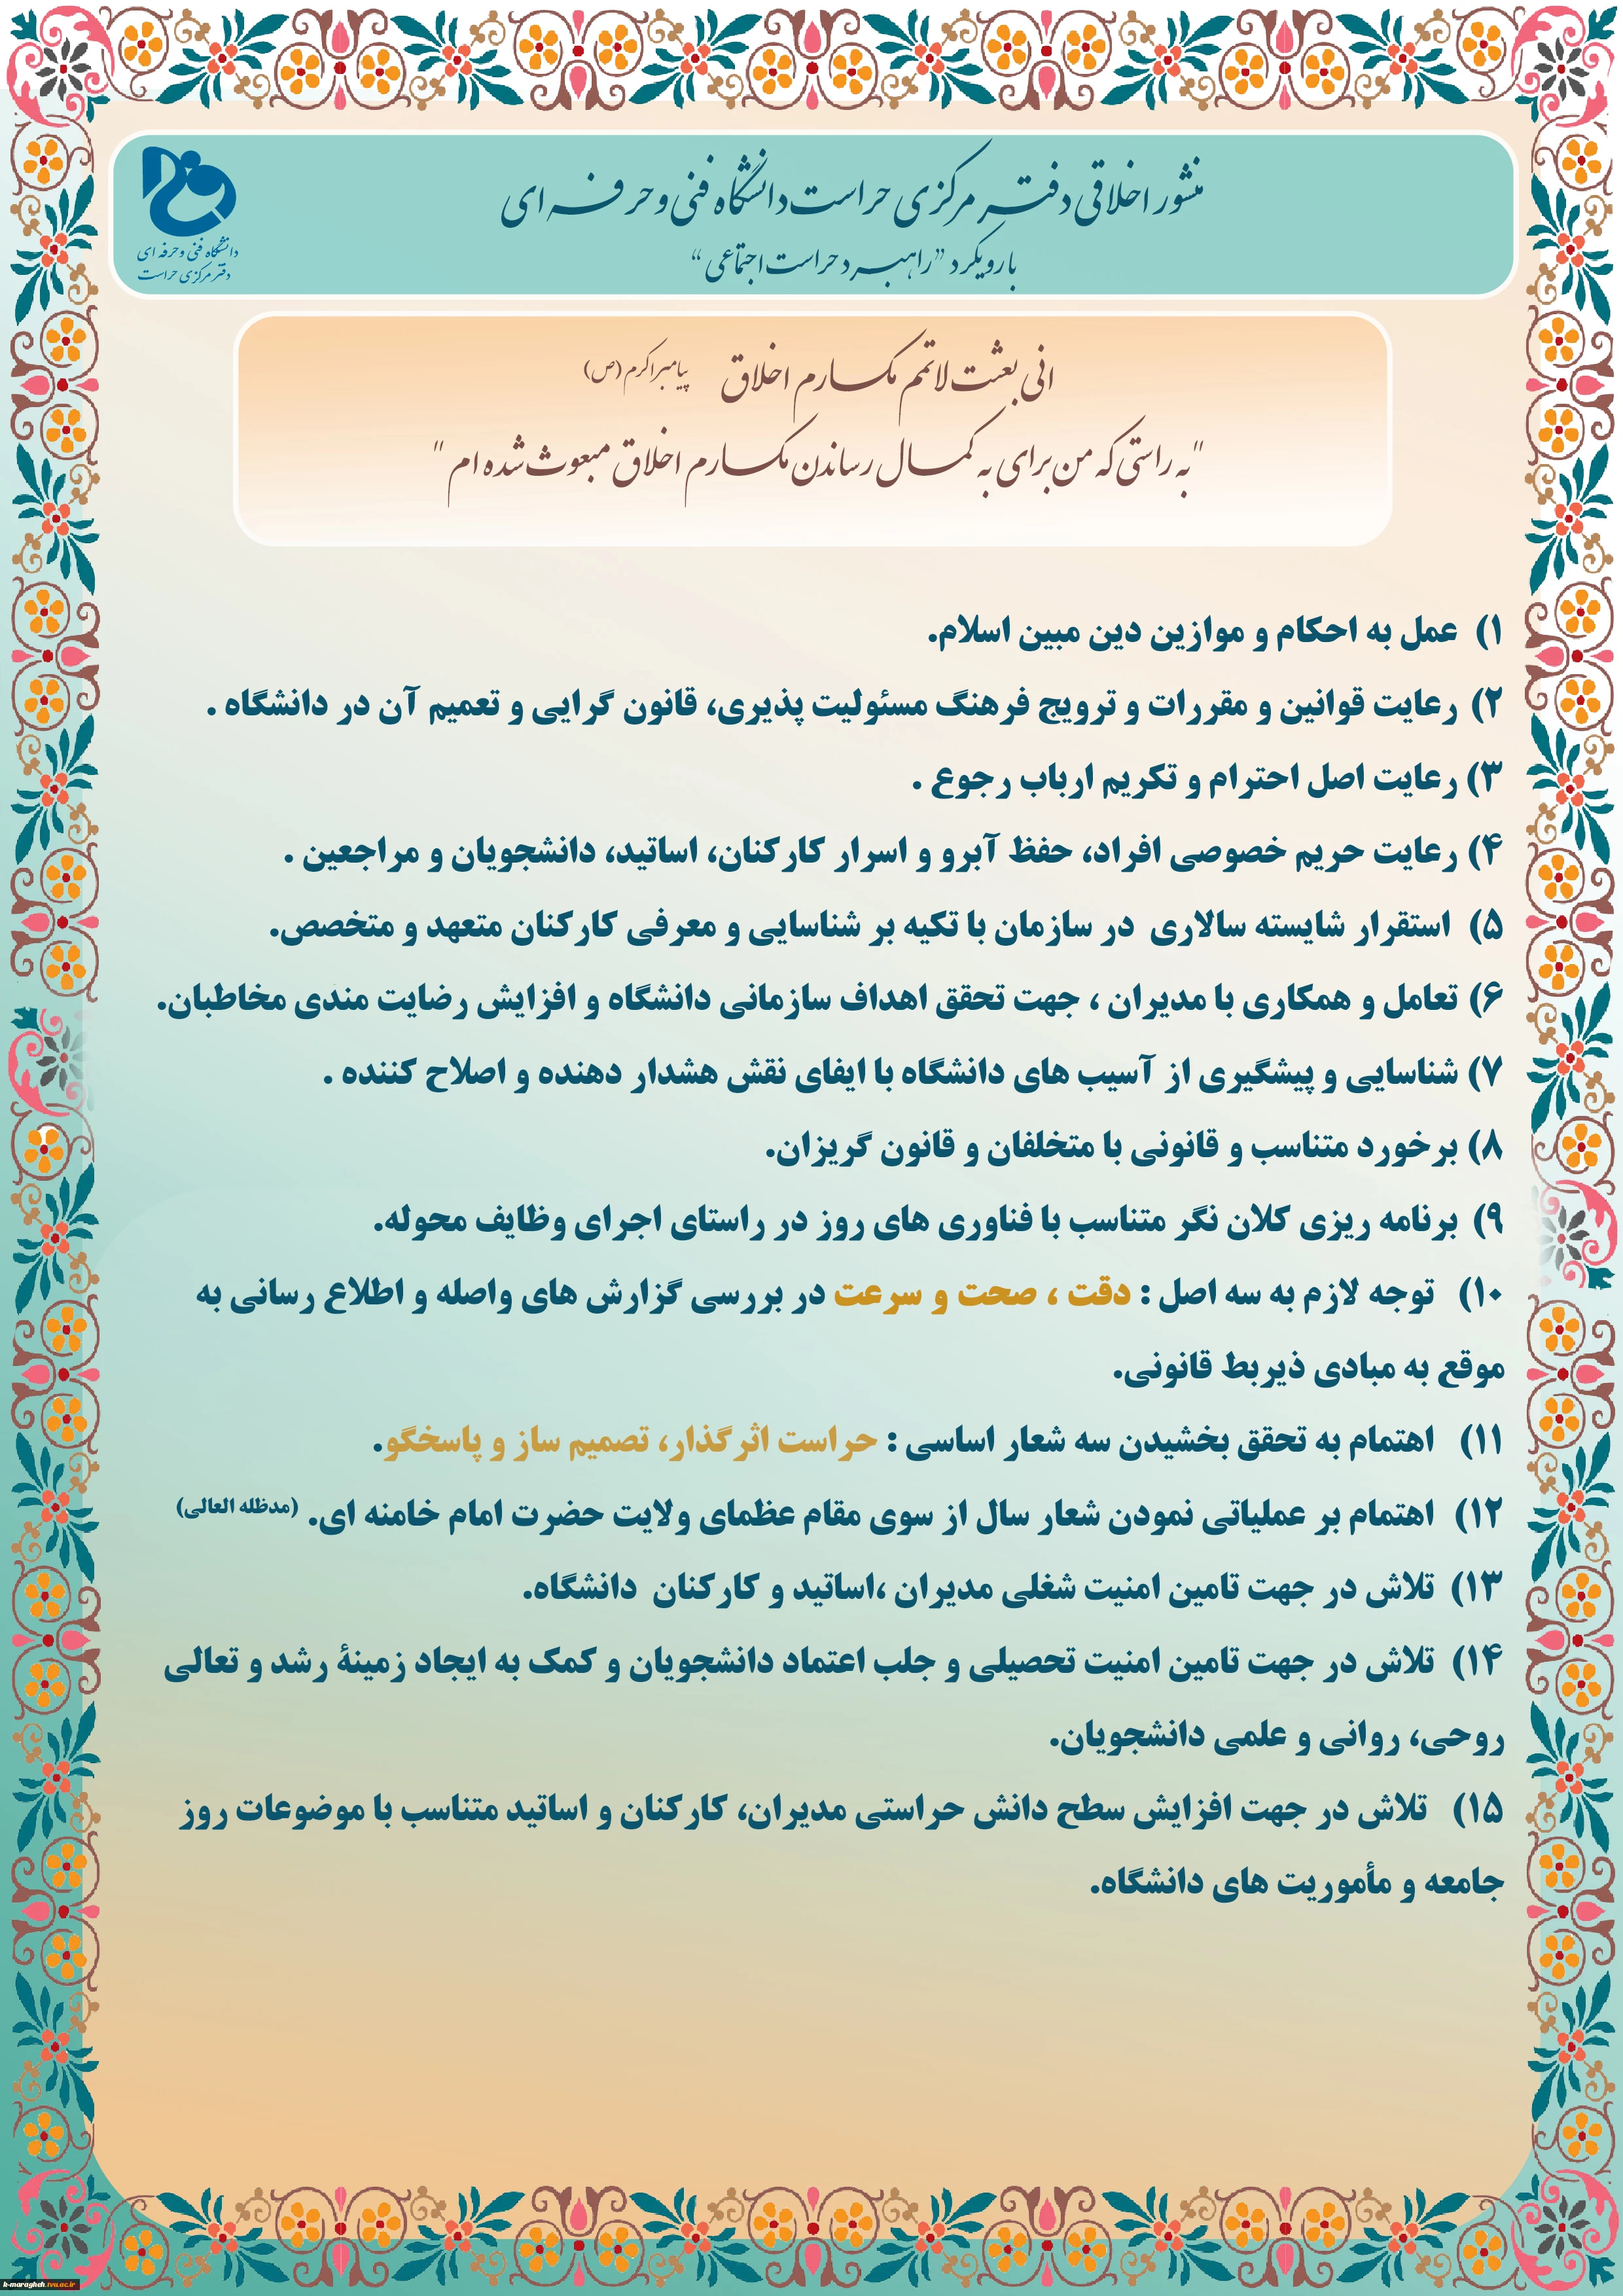 منشور اخلاقی دفتر مرکزی حراست دانشگاه فنی و حرفه ای
با رویکرد "راهبرد حراست اجتماعی"
دانشگاه فنی و حرفه ای
دفتر مرکزی حراست
انی بعثت لاتمم مکارم اخلاق پیامبر اکرم (ص)
"به راستی که من برای به کمال رساندن مکارم اخلاق مبعوث شده ام"
۱) عمل به احکام و موازین دین مبین اسلام.
۲) رعایت قوانین و مقررات و ترویج فرهنگ مسئولیت پذیری، قانون گرایی و تعمیم آن در دانشگاه .
۳) رعایت اصل احترام و تکریم ارباب رجوع .
۴) رعایت حریم خصوصی افراد، حفظ آبرو و اسرار کارکنان، اساتید، دانشجویان و مراجعین .
۵) استقرار شایسته سالاری در سازمان با تکیه بر شناسایی و معرفی کارکنان متعهد و متخصص.
۶) تعامل و همکاری با مدیران ، جهت تحقق اهداف سازمانی دانشگاه و افزایش رضایت مندی مخاطبان.
۷) شناسایی و پیشگیری از آسیب های دانشگاه با ایفای نقش هشدار دهنده و اصلاح کننده .
۸) برخورد متناسب و قانونی با متخلفان و قانون گریزان.
۹) برنامه ریزی کلان نگر متناسب با فناوری های روز در راستای اجرای وظایف محوله.
۱۰) توجه لازم به سه اصل : دقت ، صحت و سرعت در بررسی گزارش های واصله و اطلاع رسانی به
موقع به مبادی ذیربط قانونی.
۱۱) اهتمام به تحقق بخشیدن سه شعار اساسی : حراست اثرگذار، تصمیم ساز و پاسخگو.
۱۲) اهتمام بر عملیاتی نمودن شعار سال از سوی مقام عظمای ولایت حضرت امام خامنه ای. (مدظله العالی)
۱۳) تلاش در جهت تامین امنیت شغلی مدیران ،اساتید و کارکنان دانشگاه.
۱۴) تلاش در جهت تامین امنیت تحصیلی و جلب اعتماد دانشجویان و کمک به ایجاد زمینهٔ رشد و تعالی
روحی، روانی و علمی دانشجویان.
۱۵) تلاش در جهت افزایش سطح دانش حراستی مدیران، کارکنان و اساتید متناسب با موضوعات روز
جامعه و مأموریت های دانشگاه.
k-maragheh.tvu.ac.ir